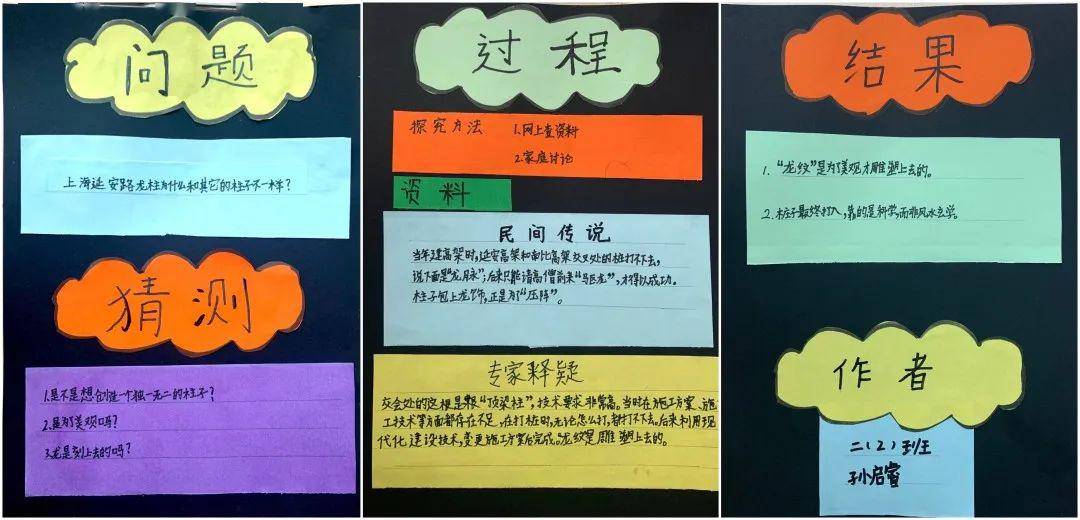 问题
上海延安路龙柱为什么和其它的柱子不一样?
猜测
1.是不是想创造一个独一无二的柱子?
2.是为了美观吗?
3.龙是刻上去的吗?
过程
探究方法 1.网上查资料
2.家庭讨论
资料
民间传说
当年建高架时,延安高架和南北高架交叉处的桩打不下去,
说下面是"龙脉";后来只能请高僧前来"驱龙",才得以成功。
柱子包上龙饰,正是为了"压阵"。
专家释疑
交会处的这根是根"顶梁柱",技术要求非常高。当时在施工方案、施
工技术等方面都存在不足,在打桩时,无论怎么打,都打不下去。后来利用现
代化建设技术,变更施工方案后完成。龙纹是雕塑上去的。
结果
1. "龙纹"是为了美观才雕塑上去的。
2. 柱子最终打入,靠的是科学,而非风水玄学。
作者
二(2)班
孙启睿